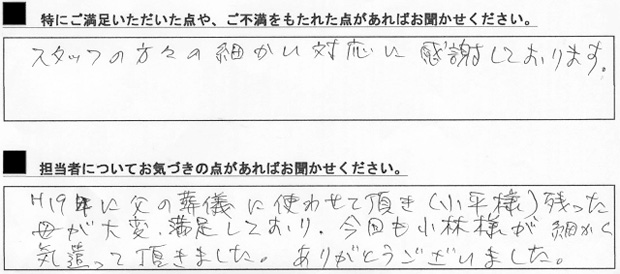 ■ 特にご満足いただいた点や、ご不満をもたれた点があればお聞かせください。
スタッフの方々の細かい対応に感謝しております。
■ 担当者についてお気づきの点があればお聞かせください。
H19年に父の葬儀に使わせて頂き(小平様)残った
母が大変、満足しており、今回も小林様が細かく
気遣って頂きました。ありがとうございました。